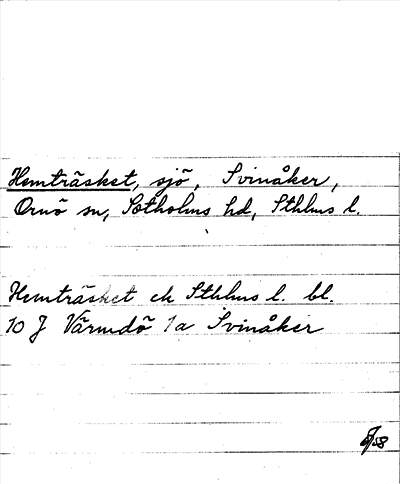 Hemträsket, sjö, Svinåker,
Ornö sn, Sotholms hd, Sthlms l.
Hemträsket ek Sthlms l. bl.
10 J Värmdö 1a Svinåker